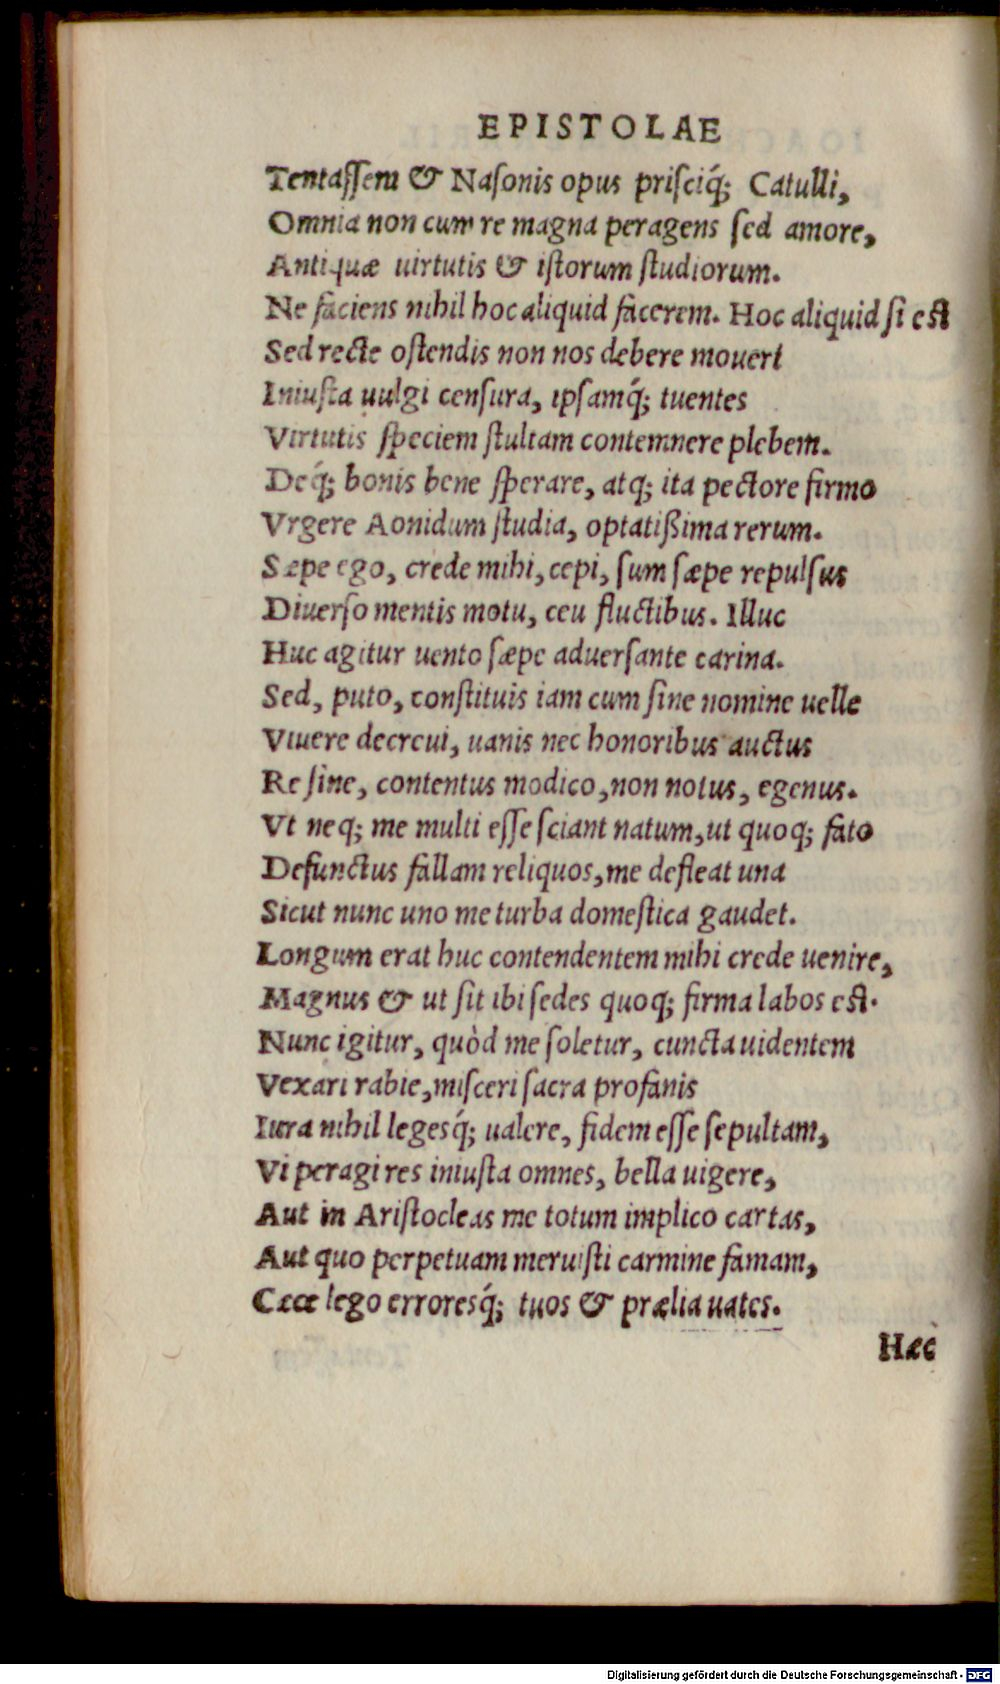 EPISTOLAE
Tentassem & Nasonis opus prisciq́; Catulli,
Omnia non cum re magna peragens sed amore,
Antiquæ uirtutis & istorum studiorum.
Ne faciens nihil hoc aliquid facerem. Hoc aliquid si est
Sed recte ostendis non nos debere moueri
Iniusta uulgi censura, ipsamq́; tuentes
Virtutis speciem stultam contemnere plebem.
Deq́; bonis bene sperare, atq; ita pectore firmo
Vrgere Aonidum studia, optatißima rerum.
Sæpe ego, crede mihi, cepi, sum sæpe repulsus
Diuerso mentis motu, ceu fluctibus. Illuc
Huc agitur uento sæpe aduersante carina.
Sed, puto, constituis iam cum sine nomine uelle
Viuere decreui, uanis nec honoribus auctus
Re sine, contentus modico, non notus, egenus.
Vt neq; me multi esse sciant natum, ut quoq; fato
Defunctus fallam reliquos, me defleat una
Sicut nunc uno me turba domestica gaudet.
Longum erat huc contendentem mihi crede uenire,
Magnus & ut sit ibi sedes quoq; firma labos est.
Nunc igitur, quòd me soletur, cuncta uidentem
Vexari rabie, misceri sacra profanis
Iura nihil legesq́; ualere, fidem esse sepultam,
Vi peragi res iniusta omnes, bella uigere,
Aut in Aristocleas me totum implico cartas,
Aut quo perpetuam meruisti carmine famam,
Cæce lego erroresq́; tuos & prælia uates.
Hæc
Digitalisierung gefördert durch die Deutsche Forschungsgemeinschaft - DFG